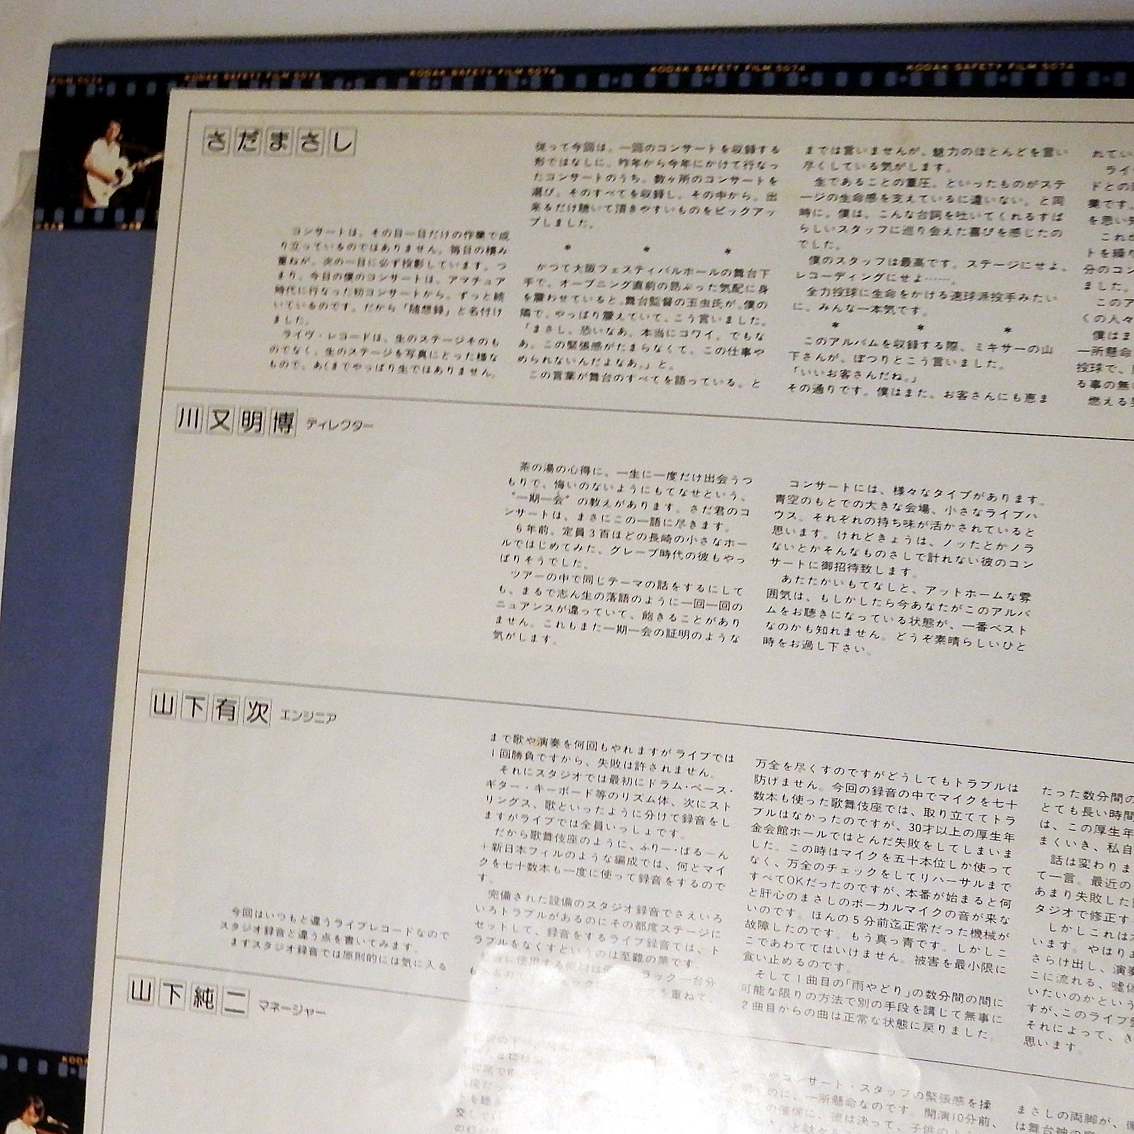 KODAK SAFETY FILM 5074
KODAK SAFETY FILM 5074
KODAK SAFETY FILM 5074
KODAK SAFETY FILM 5074
さだまさし
コンサートは、その日一日だけの作業で成
り立っているのではありません。毎日の積み
重ねが、次の一日に必ず投影しています。つ
まり、今日の僕のコンサートは、アマチュア
時代に行なった初コンサートから、ずっと続
いているのです。だから「随想録」と名付け
ました。
ライヴ・レコードは、生のステージそのも
のでなく、生のステージを写真にとった様な
もので、あくまでやっぱり生ではありません。
従って今回は、一回のコンサートを収録する
形ではなしに、昨年から今年にかけて行なっ
たコンサートのうち、数ヶ所のコンサートを
選び、そのすべてを収録し、その中から、出
来るだけ聴いて頂きやすいものをピックアッ
プしました。
* * *
かつて大阪フェスティバルホールの舞台下
手で、オープニング直前の昂ぶった気配に身
を震わせていると、舞台監督の玉虫氏が、僕の
隣で、やっぱり震えていて、こう言いました。
「まさし、恐いなあ。本当にコワイ。でもな
あ、この緊張感がたまらなくて、この仕事や
められないんだよなあ。」と。
この言葉が舞台のすべてを語っている、と
までは言いませんが、魅力のほとんどを言い
尽くしている気がします。
生であることの重圧、といったものがステ
ージの生命感を支えているに違いない、と同
時に、僕は、こんな台詞を吐いてくれるすば
らしいスタッフに巡り会えた喜びを感じたの
でした。
僕のスタッフは最高です。ステージにせよ、
レコーディングにせよ……。
全力投球に生命をかける速球派投手みたい
に、みんな一本気です。
* * *
このアルバムを収録する際、ミキサーの山
下さんが、ぽつりとこう言いました。
「いいお客さんだね。」
その通りです。僕はまた、お客さんにも恵ま
れてい
ライ
ドとの
業です。
を思い
これか
トを繰り
分のコン
ました。
このア
くの人々
僕はま
一所懸命
投球で、
る事の無い
燃える
川又明博 ディレクター
茶の湯の心得に、一生に一度だけ出会うつ
もりで、悔いのないようにもてなせという、
“一期一会”の教えがあります。さだ君のコ
ンサートは、まさにこの一語に尽きます。
6年前、定員3百ほどの長崎の小さなホー
ルではじめてみた、グレープ時代の彼もやっ
ぱりそうでした。
ツアーの中で同じテーマの話をするにして
も、まるで志ん生の落語のように一回一回の
ニュアンスが違っていて、飽きることがあり
ません。これもまた一期一会の証明のような
気がします。
コンサートには、様々なタイプがあります。
青空のもとでの大きな会場、小さなライブハ
ウス。それぞれの持ち味が活かされていると
思います。けれどきょうは、ノッたとかノラ
ないとかそんなものさしで計れない彼のコン
サートに御招待致します。
あたたかいもてなしと、アットホームな雰
囲気は、もしかしたら今あなたがこのアルバ
ムをお聴きになっている状態が、一番ベスト
なのかも知れません。どうぞ素晴らしいひと
時をお過し下さい。
山下有次 エンジニア
今回はいつもと違うライブレコードなので
スタジオ録音と違う点を書いてみます。
まずスタジオ録音では原則的には気に入る
まで歌や演奏を何回もやれますがライブでは
1回勝負ですから、失敗は許されません。
それにスタジオでは最初にドラム・ベース・
ギター・キーボード等のリズム体、次にスト
リングス、歌といったように分けて録音をし
ますがライブでは全員いっしょです。
だから歌舞伎座のように、ふりー・ばるーん
+新日本フィルのような編成では、何とマイ
クを七十数本も一度に使って録音をするので
す。
完備された設備のスタジオ録音でさえいろ
いろトラブルがあるのにその都度ステージに
セットして、録音をするライブ録音では、ト
ラブルをなくすというのは至難の業です。
を重ねて、
万全を尽くすのですがどうしてもトラブルは
防げません。今回の録音の中でマイクを七十
数本も使った歌舞伎座では、取り立ててトラ
ブルはなかったのですが、30才以上の厚生年
金会館ホールではとんだ失敗をしてしまいま
した。この時はマイクを五十本位しか使って
なく、万全のチェックをしてリハーサルまで
すべてOKだったのですが、本番が始まると何
と肝心のまさしのボーカルマイクの音が来な
いのです。ほんの5分前迄正常だった機械が
故障したのです。もう真っ青です。しかしこ
こであわててはいけません。被害を最小限に
食い止めるのです。
そして1曲目の「雨やどり」の数分間の間に
可能な限りの方法で別の手段を講じて無事に
2曲目からの曲は正常な状態に戻りました。
たった数分間の
とても長い時間
は、この厚生年
まくいき、私自
話は変わりま
て一言。最近の
あまり失敗した
タジオで修正す
しかしこれは
います。やはり
さらけ出し、演奏
こに流れる、
いたいのかという
すが、このライブ
それによって、き
思います。
山下純二 マネージャー
やコンサート・スタッフの緊張感を揉
のに、一所懸命なのです。開演10分前、
まさしの両脚が、
は舞台